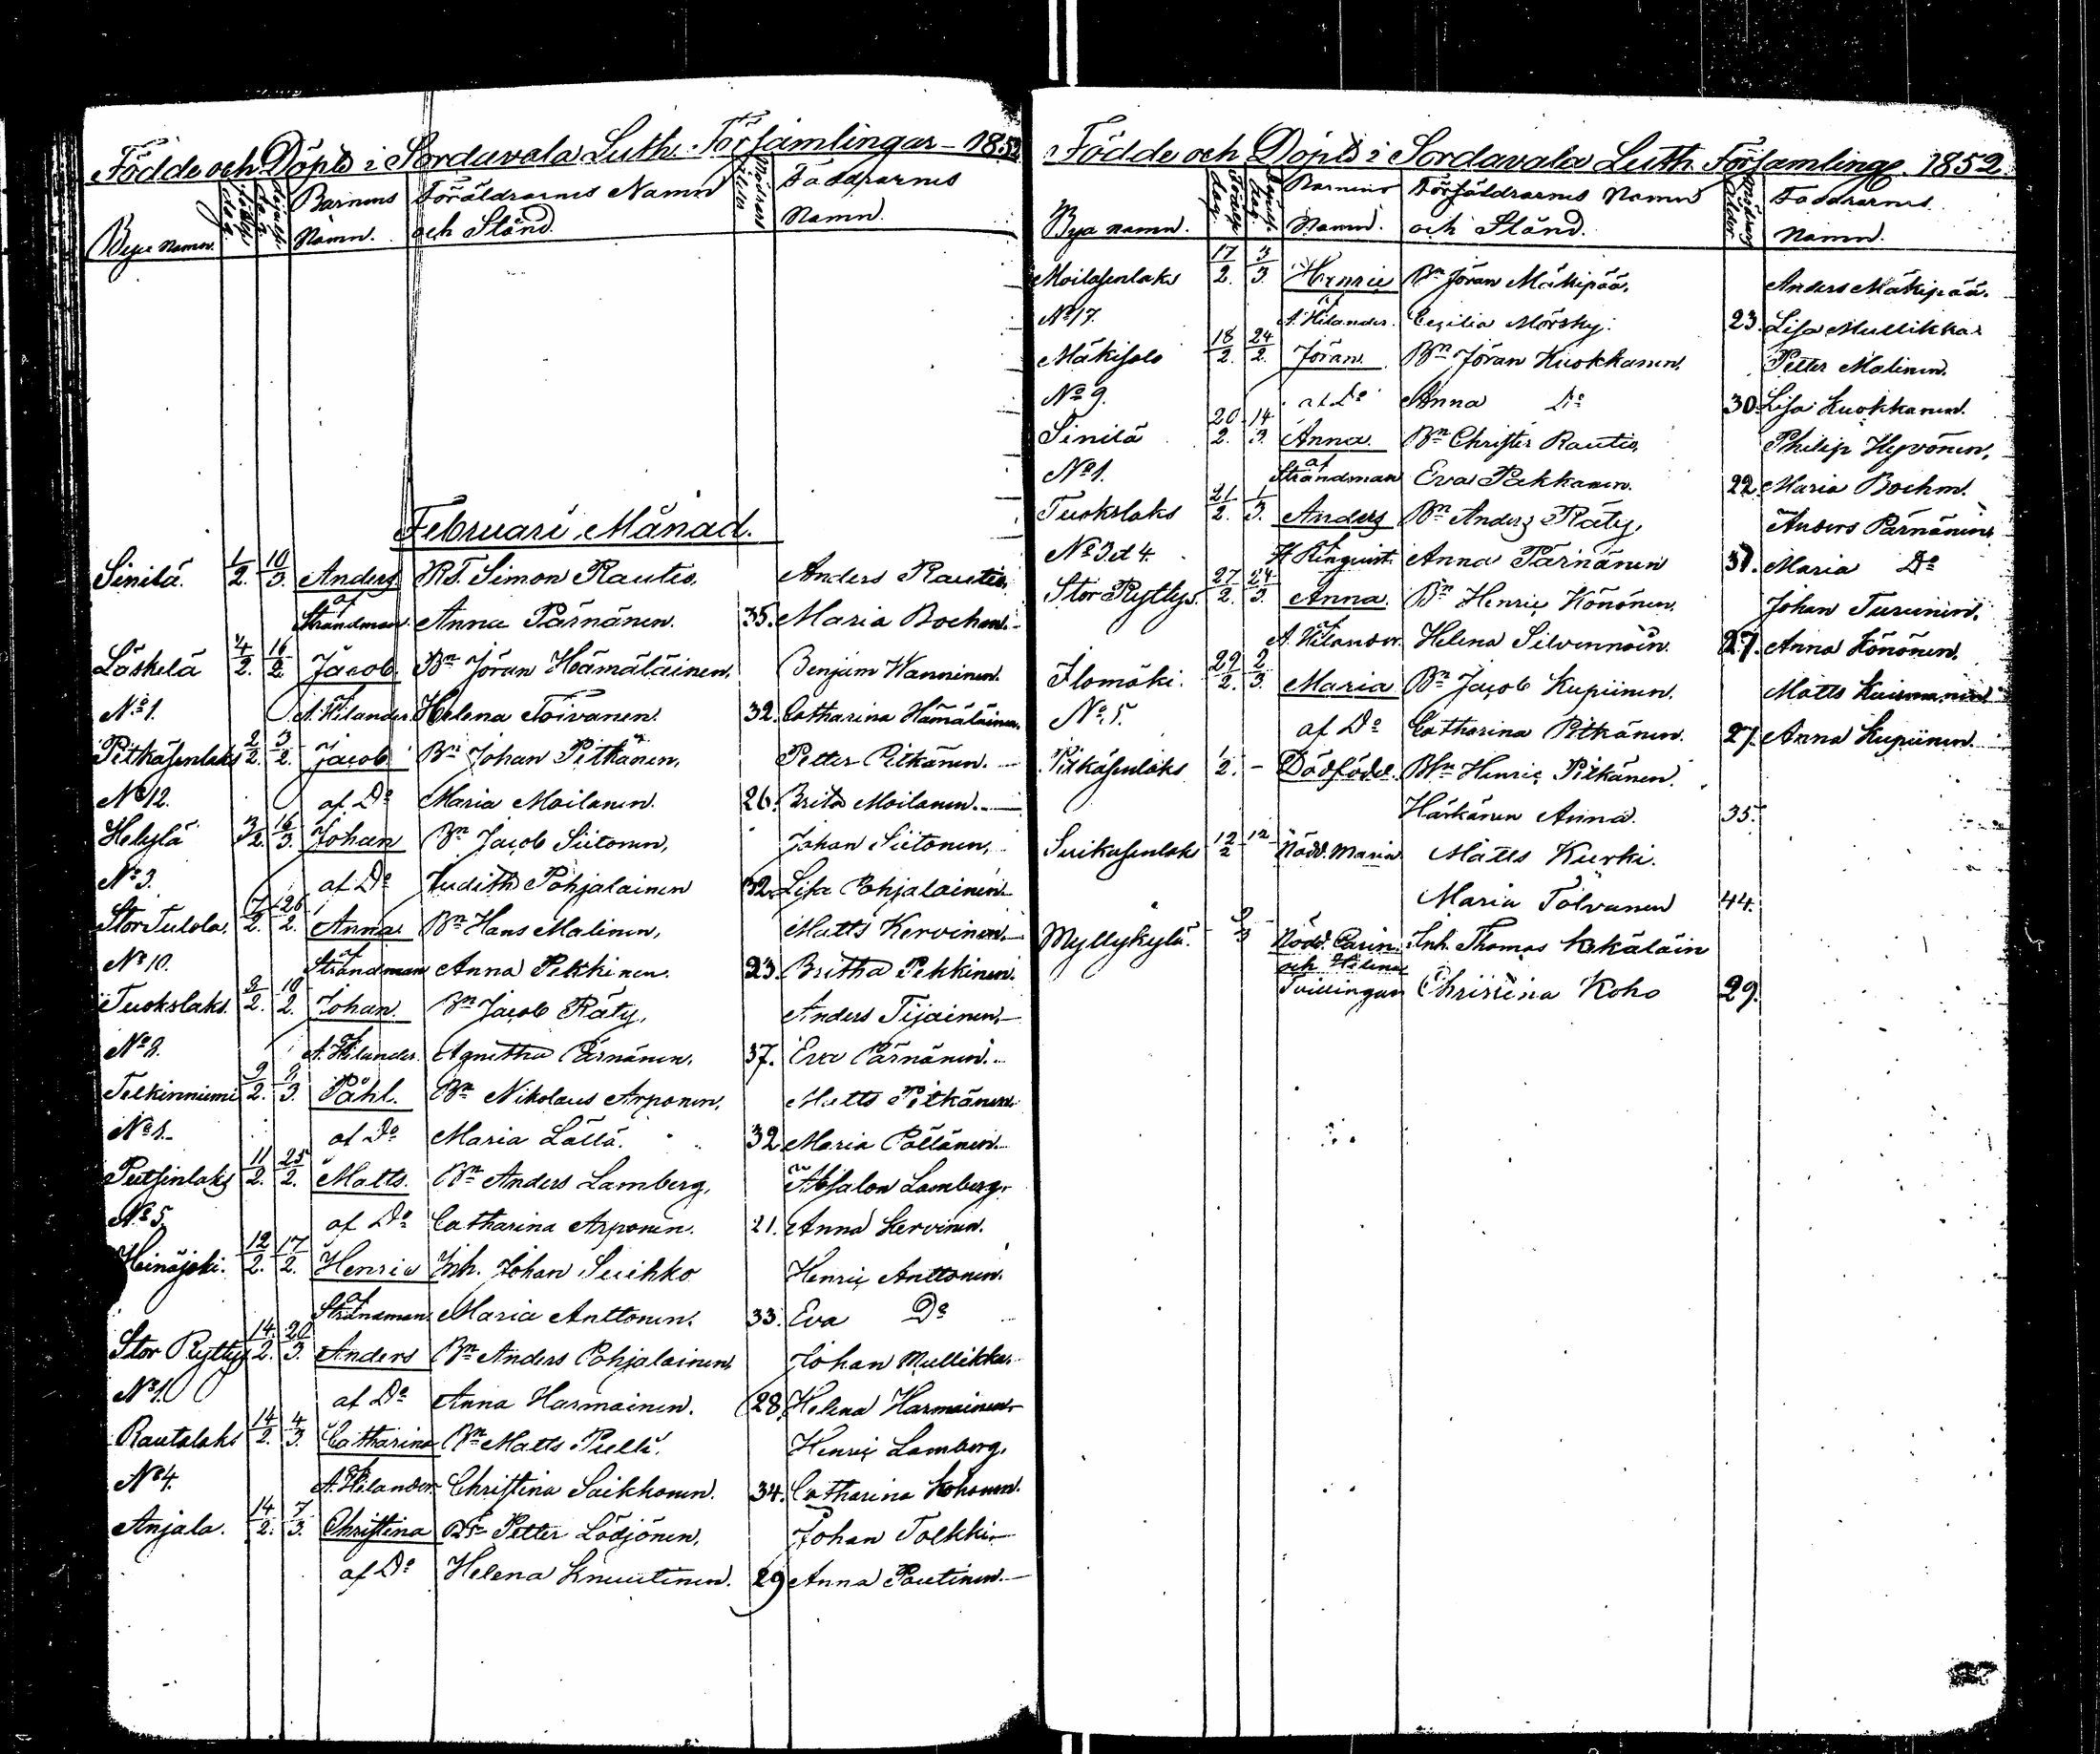 Födde och Döpte i Sordavala Luth. Församlingar - 1852
Bya namn. Barnens Namn. Föräldrarnes Namn och Stånd. Moderns ålder Faddrarnes Namn.
Februari Månad.
Sinilä. 1/2. 10/3. Anders RT. Simon Rautio. Anders Rautio.
af Strandman. Anna Pärnänen. 35. Maria Boehm.
Läskelä 4/2. 16/2. Jacob Bn Jöran Hämäläinen, Benjam Wanninen.
No 1. af A. Hilander. Helena Toivanen. 32. Catharina Hämäläinen.
Pitkäsenlaks 2/2. 3/2. Jacob Bn Johan Pitkänen, Petter Pitkänen.
No 12. af Do Maria Moilanen. 26. Brita Moilanen.
Helylä 3/2. 16/3. Johan Bn Jacob Siitonen, Johan Siitonen,
No 3. af Do Judith Pohjalainen 32. Lisa Pohjalainen.
Stor Tulola. 7/2. 26/2. Anna. Bn Hans Malinen, Matts Kervinen.
No 10. af Strandman Anna Pekkinen. 23. Britha Pekkinen.
Tuokslaks. 8/2. 10/2. Johan. Bn Jacob Räty, Anders Tijainen,
No 8. af A. Hilander. Agnetha Pärnänen, 37. Eva Pärnänen.
Telkinniemi 9/2. 8/3. Påhl. Bn Nikolaus Arponen, Matts Pitkänen.
No 1. af Do Maria Lättä. 32 Maria Pöllänen.
Putsinlaks 11/2. 25/2. Matts. Bn Anders Lamberg, Absalon Lamberg.
No 5. af Do Catharina Arponen. 21. Anna Kervinen.
Heinäjoki. 12/2. 17/2. Henric Inh. Johan Suihko Henric Anttonen.
af Strandman. Maria Anttonen. 33. Eva Do
Stor Ryttys 14/2. 20/3. Anders Bn Anders Pohjalainen, Johan Mullikka.
No 1. af Do Anna Harmainen. 28. Helena Harmainen.
Rautalaks 14/2. 4/3. Catharina Bn Matts Pulli. Henric Lamberg,
No 4. af A. Hilander. Christina Saikkonen. 34. Catharina Kohonen.
Anjala. 14/2. 7/3. Christina Bn Petter Lödjönen, Johan Tolkki
af Do Helena Knuutinen. 29 Anna Pautinen.
Födde och Döpte i Sordavala Luth. Församling. 1852
Bya namn. Barnens Namn. Föräldrarnes Namn och Stånd. Faddrarnes Namn.
Moilasenlaks 17/2. 3/3. Henric Bn Jöran Mäkipää. Anders Mäkipää.
No 17. af A. Hilander. Cecilia Mörsky. 23. Lisa Mullikka.
Mäkisalo 18/2. 24/2. Jöran. Bn Jöran Kuokkanen. Petter Malinen.
No 9. af Do Anna Do 30. Lisa Kuokkanen.
Sinilä 20/2. 14/3. Anna. Bn Christer Rautio, Philip Hyvönen,
No 1. af Strandman Eva Pakkanen. 22. Maria Boehm.
Tuokslaks 21/2. 1/3. Anders Bn Anders Räty, Anders Pärnänen
No 3 et 4. Anna Pärnänen 37. Maria Do
Stor Ryttys. 27/2. 24/3. Anna. Bn Henric Könönen, Johan Turunen.
af A. Hilander. Helena Silvennoin. 27. Anna Könönen.
Ilomäki. 29/2. 2/3. Maria Bn Jacob Kupiinen. Matts
No 5. af Do Catharina Pitkänen. 27. Anna Kupiinen.
Pitkäsenlaks 1/2. - Dödfödd. Henric Pitkänen.
Härkänen Anna. 35.
Suikasenlaks 12/2 12 Nödd. Maria Matts Kurki.
Maria Tolvanen 44.
Myllykylä. Nödd. Carin Inh. Thomas Kekäläin
och Helena
Tvillingar Christina Koho 29.